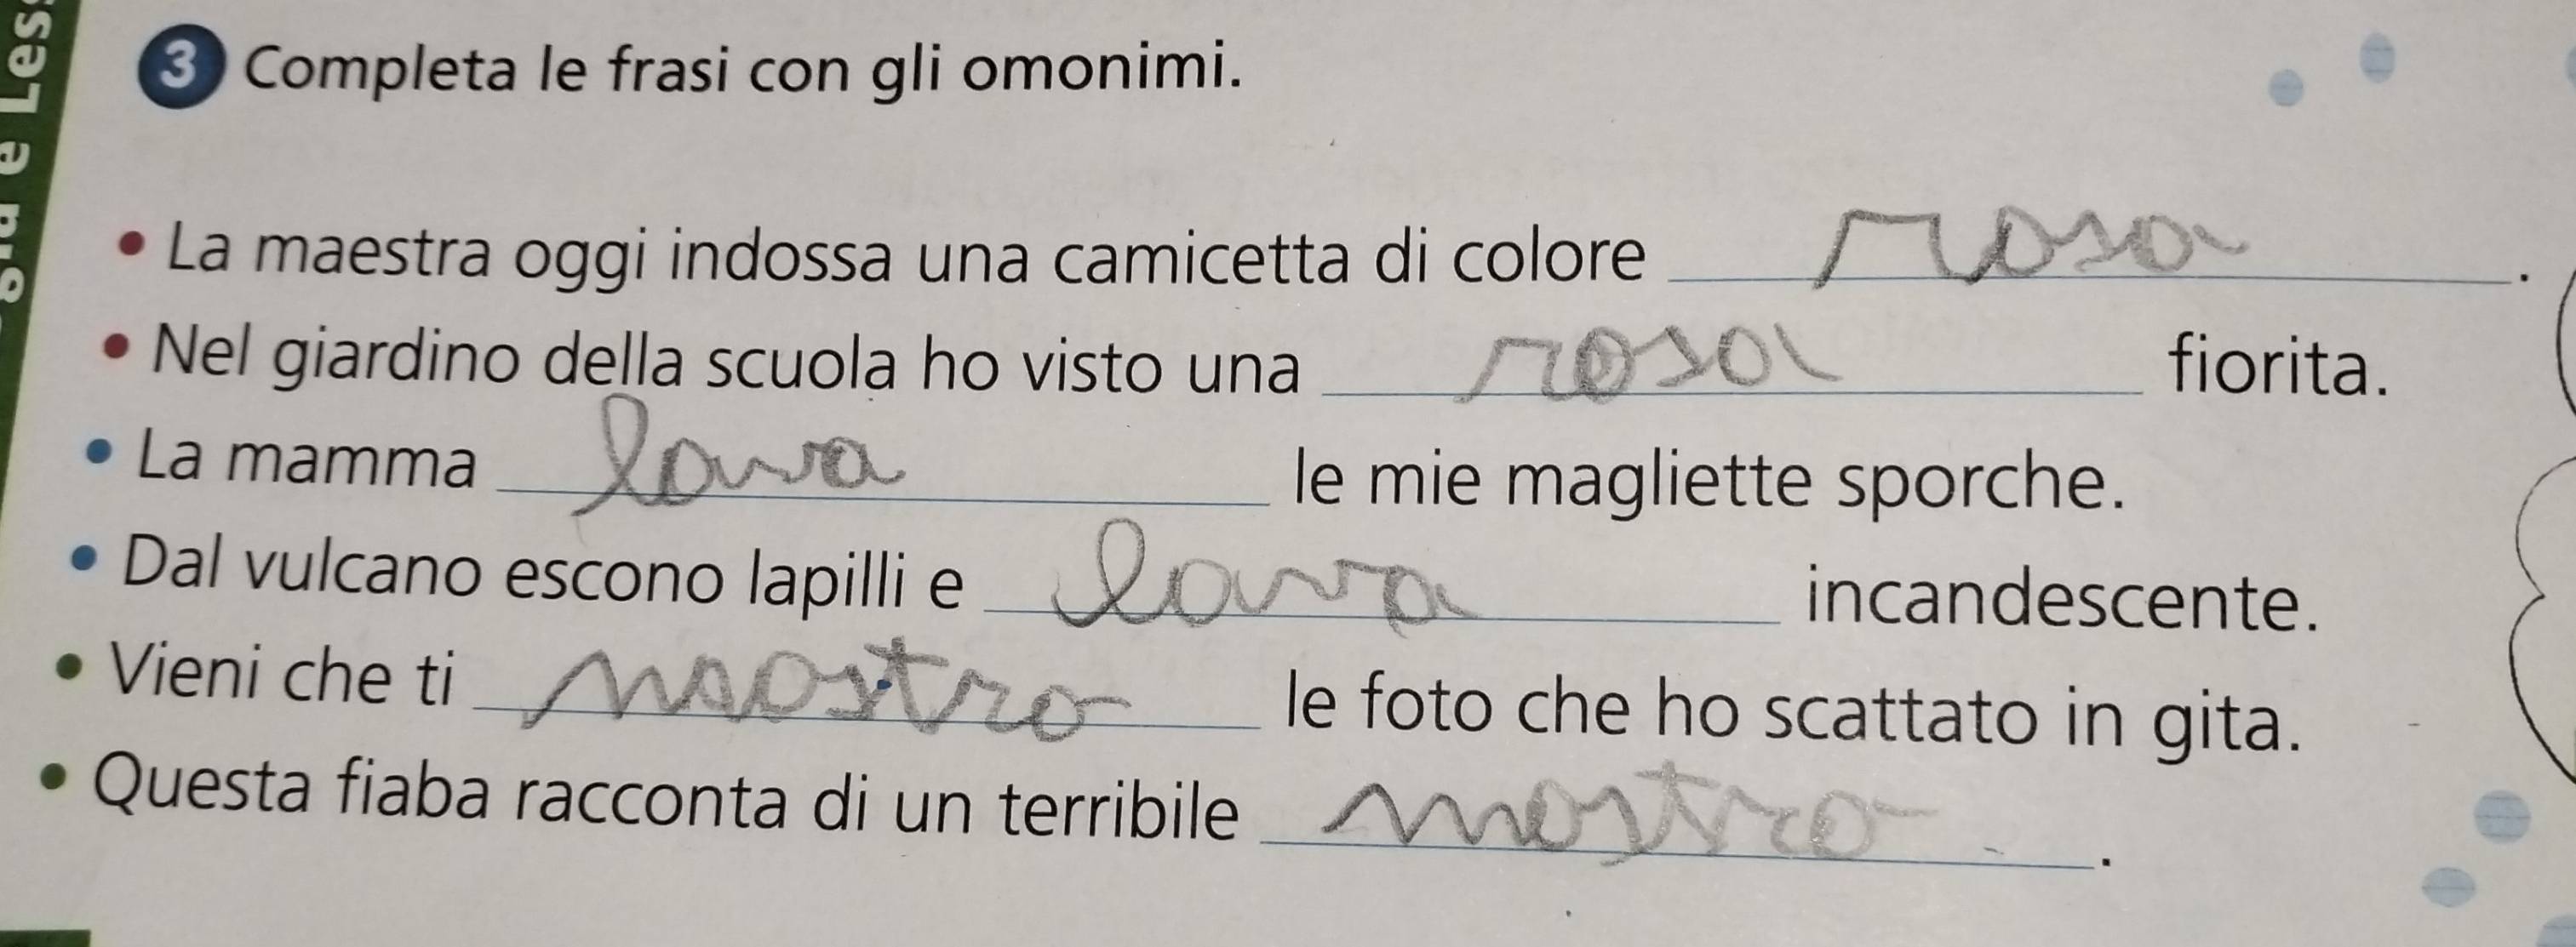 3 Completa le frasi con gli omonimi.
• La maestra oggi indossa una camicetta di colore rosa.
• Nel giardino della scuola ho visto una rosa fiorita.
• La mamma lava le mie magliette sporche.
• Dal vulcano escono lapilli e lava incandescente.
• Vieni che ti mostro le foto che ho scattato in gita.
• Questa fiaba racconta di un terribile mostro.